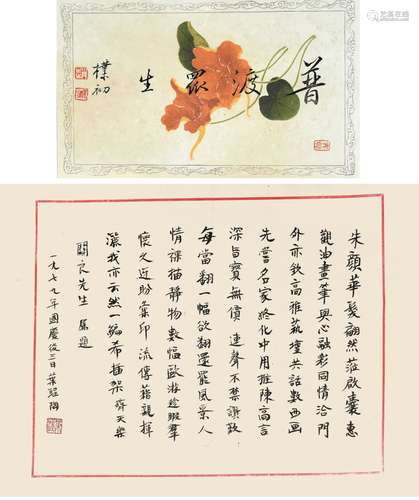 普渡眾生
樸初
朱顏華髮翩然蒞啟囊惠
觀油畫筆與心融彩同情洽門
外亦欽高雅藝壇共話數西画
先嘗名家終化中用推陳高言
深旨寶無價 連聲不禁讚
每當翻一幅欲翻還罷風景人
情裸描靜物數幅歐游趁暇羣
懷久 盼彙印流傳藉親揮
灑我亦云然一編希插架 齊天樂
關良先生 屬題
一九七九年國慶後三日葉聖陶